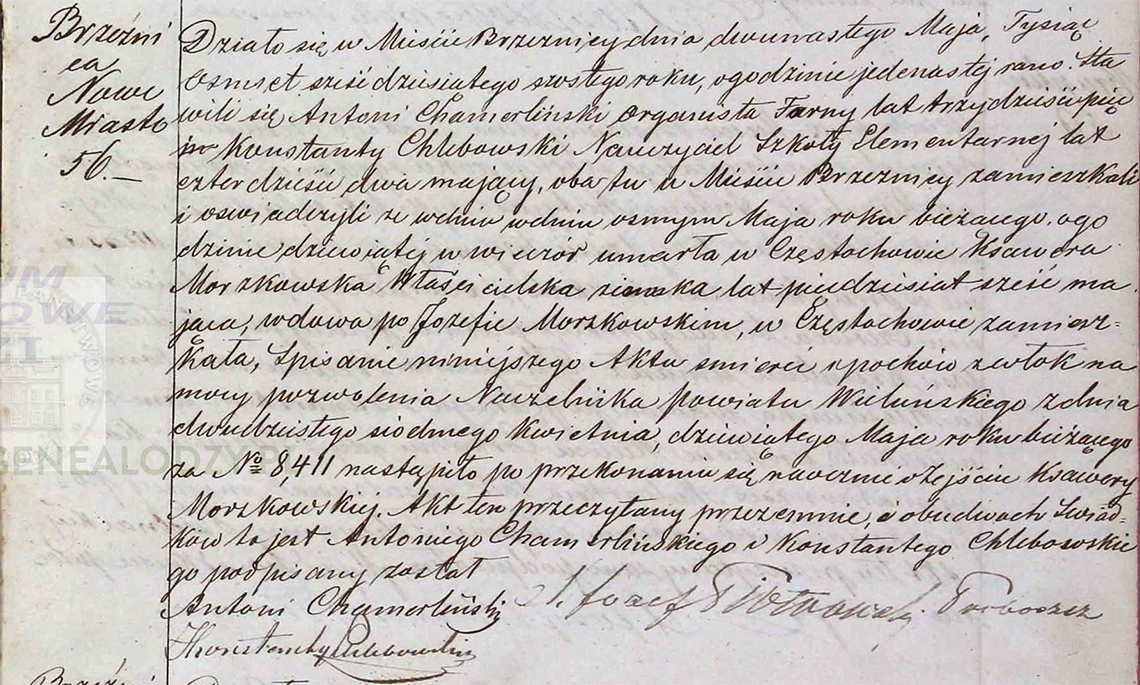 Brzeźni
ca
Nowe
Miasto
56.—
Działo się w Mieście Brzeznicy dnia dwunastego Maja, Tysiąc
Osmset sześćdziesiątego szóstego roku, o godzinie jedenastej rano. Sta
wili się Antoni Chamerliński Organista Farny lat trzydzieści pięć
Konstanty Chlebowski Nauczyciel Szkoły Elementarnej lat
czterdzieści dwa mający, oba tu w Mieście Brzeznicy zamieszkali
i oswiadczyli ze wdniu wdniu osmym Maja roku bieżącego, ogo
dzinie dziewiątej w wieczór umarła w Częstochowie Ksawera
Morzkowska Właścicielka ziemska lat piędziesiat sześć ma
jąca, wdowa po Jozefie Morzkowskim, w Częstochowie zamiesz=
kała, Spisanie niniejszego Aktu smierci i pochów zwłok na
mocy pozwolenia Naczelnika Powiatu Wieluńskiego z dnia
dwudziestego siodmego Kwietnia, dziewiątego Maja roku bieżącego
za № 8,411 nastąpiło po przekonaniu się naocznie o zejściu Ksawery
Morzkowskiej. Akt ten przeczytany przezemnie, i obudwoch Swiad-
ków to jest Antoniego Chamerlińskiego i Konstantego Chlebowskie
go podpisany został
Antoni Chamerliński
X. Jozef Piotrowski Proboszcz
Konstanty Chlebowski
GENEALODZY.P